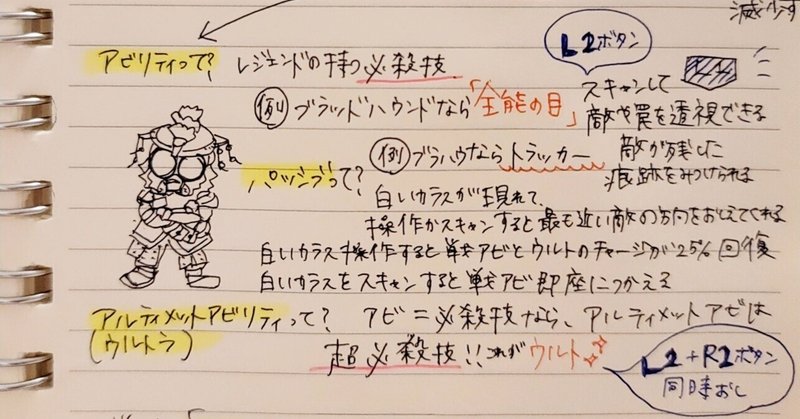 減少す
L2ボタン
アビリティって? レジェンドの持つ必殺技
例 ブラッドハウンドなら「全能の目」スキャンして
敵や罠を透視できる
パッシブって? 例 ブラハウならトラッカー 敵が残した
痕跡をみつけられる
白いカラスが現れて、
操作かスキャンすると最も近い敵の方向をおしえてくれる
白いカラス操作すると戦アビとウルトのチャージが25%回復
白いカラスをスキャンすると戦アビ即座につかえる
アルティメットアビリティって? アビ=必殺技なら、アルティメットアビは
(ウルトラ) 超必殺技!!これがウルト
L2+R2ボタン
同時おし